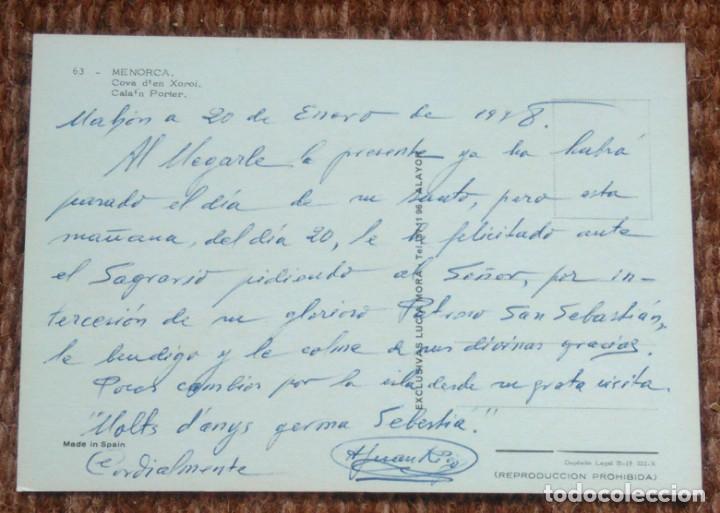 63 - MENORCA.
Cova d'en Xoroi.
Cala'n Porter.
Mahón a 20 de Enero de 1978.
Al llegarle la presente ya ha habrá
pasado el día de su santo, pero esta
mañana, del día 20, le he felicitado ante
el Sagrario pidiendo al Señor, por in-
tercesión de su glorioso Patrono San Sebastián,
le bendiga y le colme de sus divinas gracias.
Pocos cambios por la isla desde su grata visita.
"Molts d'anys germa Sebestiá."
Cordialmente
EXCLUSIVAS LUCIA MORA. Tel. 37 11 96 ALAYOR
Made in Spain
Depósito Legal B-
(REPRODUCCION PROHIBIDA)
todocoleccion.net